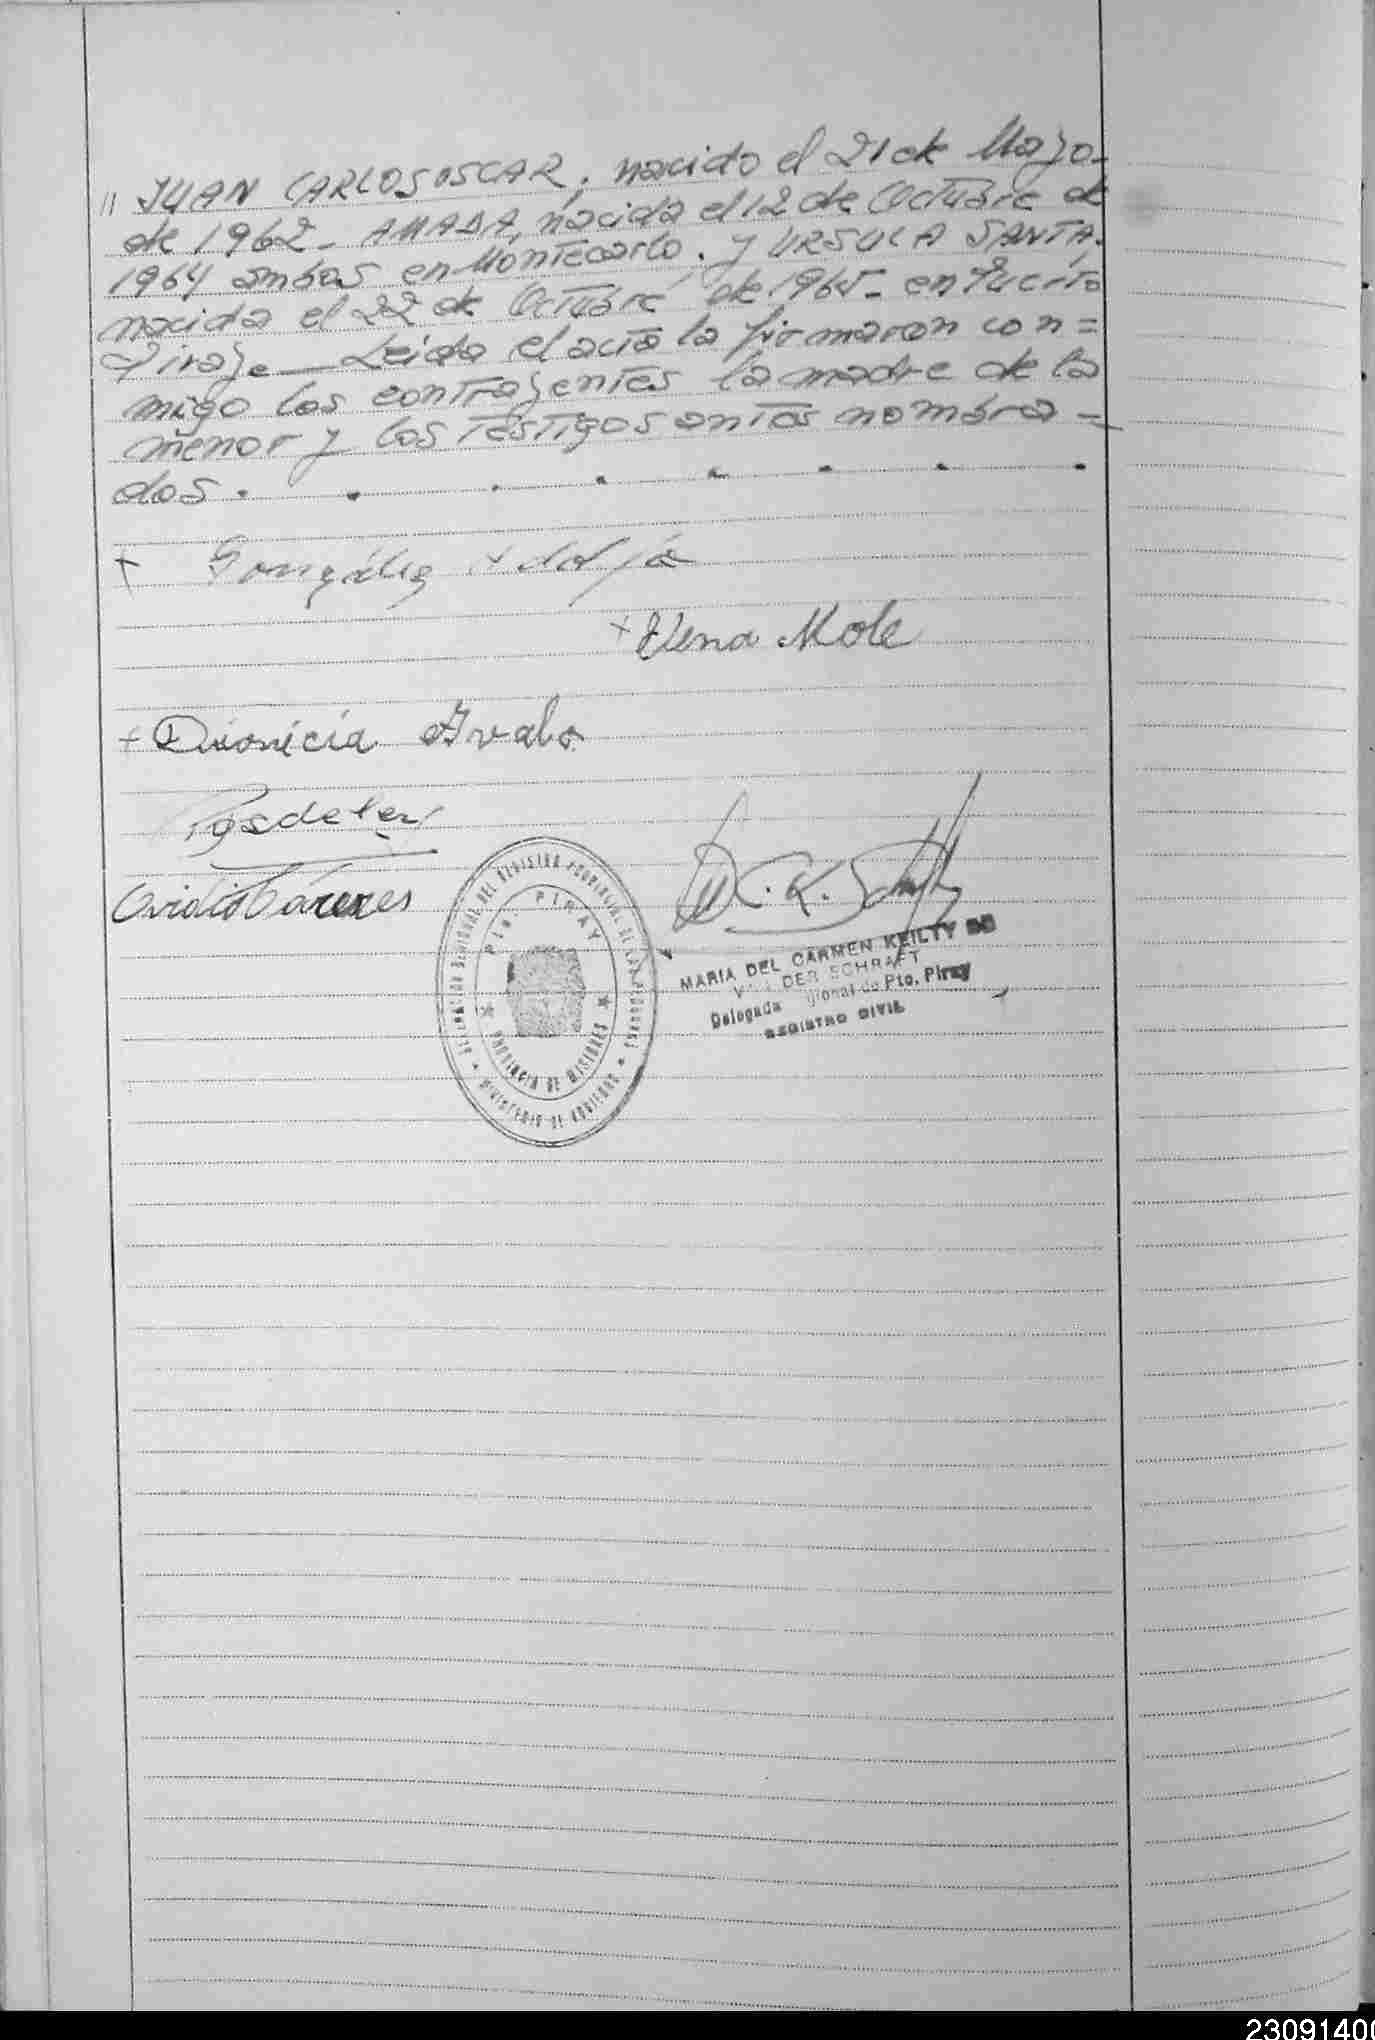 " JUAN CARLOS OSCAR, nacido el 21 de Mayo-
de 1962- AMADA, nacida el 12 de Octubre de
1964 ambos en Montecarlo. y URSULA SANTA,
nacida el 22 de Octubre de 1965- en Puerto
Piray. — Leida el acta la firmaron con=
migo los contrayentes la madre de la
menor y los testigos antes nombra=
dos.
+ González
+ Elena Mole
+ Dionicia
Ovidio
DELEGACION SECCIONAL DEL REGISTRO PROVINCIAL DE LAS PERSONAS
Pto. PIRAY
PROVINCIA DE MISIONES
MINISTERIO DE GOBIERNO
MARIA DEL CARMEN KEILTY DE
DER SCHRAFT
Delegada Pto. Piray
REGISTRO CIVIL
23091400